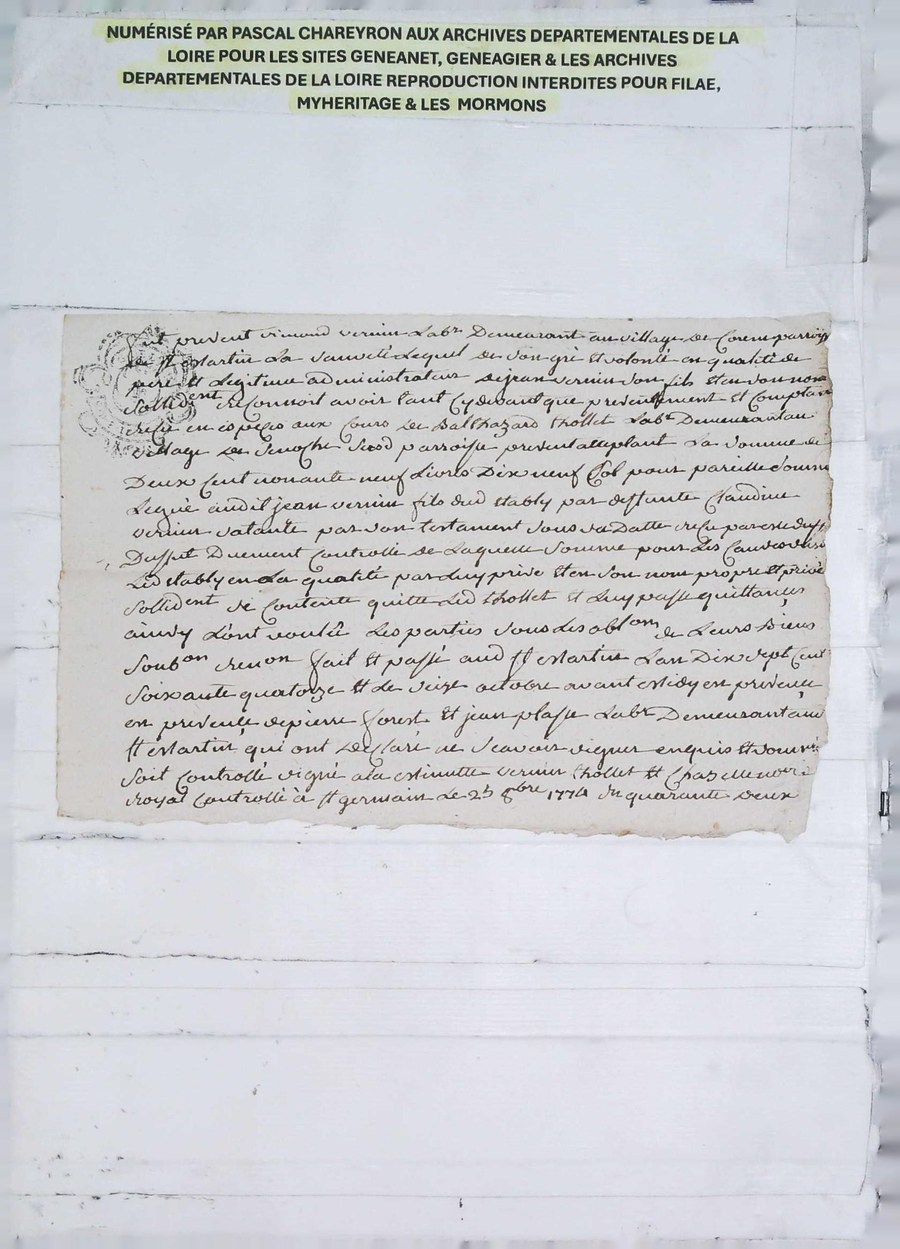 NUMÉRISÉ PAR PASCAL CHAREYRON AUX ARCHIVES DEPARTEMENTALES DE LA
LOIRE POUR LES SITES GENEANET, GENEAGIER & LES ARCHIVES
DEPARTEMENTALES DE LA LOIRE REPRODUCTION INTERDITES POUR FILAE,
MYHERITAGE & LES MORMONS
fut present vimond vernin Labr Demeurant au village de parroiss
de st Martin La Sauveté Lequel de son gré et volonté en qualité de
pere et Legitime administrateur de jean vernin son fils et en son nom
Sollident reconnoit avoir tant cydevant que presentement et comptan
reçu en especes aux cours de Balthazard thollet Labr Demeurant au
village de parroisse present acceptant La somme de
Deux cent nonante neuf Livres Dix neuf sol pour pareille somme
Legué audit jean vernin fils dud étably par deffunte Claudine
vernin tante par son testament sous sa Datte reçu par
Duement Controllé de Laquelle somme pour Les Causes
Led étably en La qualité par Luy prise et en son nom propre et privé
Sollident se Contente quitte Led thollet et Luy passe quittance
ainsy L'ont voulu Les parties sous Les oblons de Leurs Biens
Soubon renon fait et passé aud st Martin L'an Dix sept cent
Soixante quatorze et Le seize octobre avant Midy en presence
en presence de pierre forest et jean plasse Labr Demeurant aud
st Martin, qui ont Déclaré ne sçavoir signer enquis et sommé
Soit Controllé signé a la Minutte vernin thollet et Chazelle
royal Controllé à st germain Le 25 8bre 1774 quarante deux